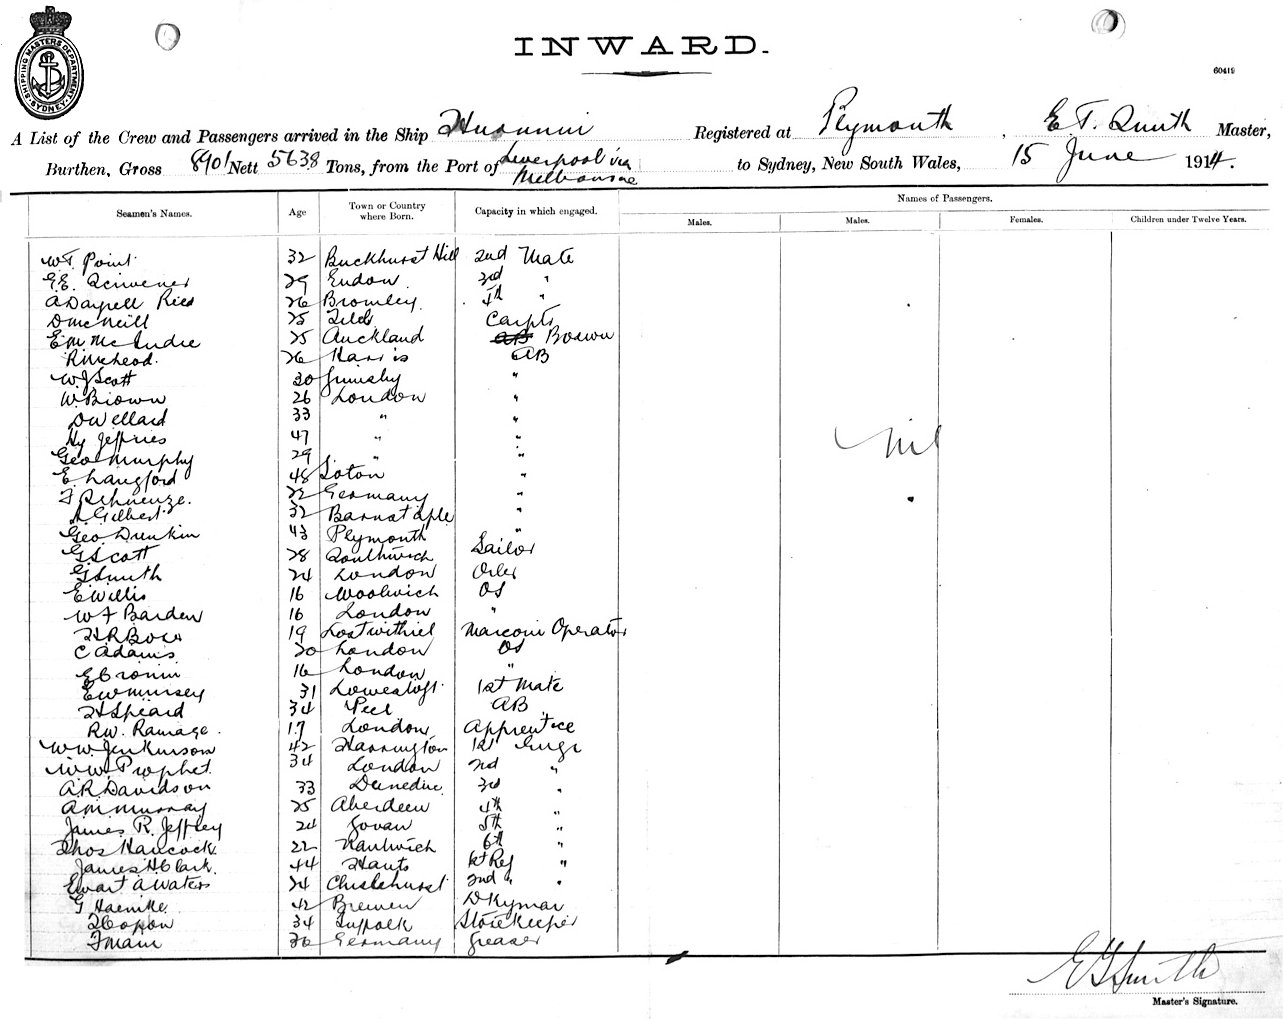 SHIPPING MASTERS DEPARTMENT. SYDNEY
INWARD.
60419
A List of the Crew and Passengers arrived in the Ship Hurunui Registered at Plymouth, E. T. Smith Master,
Burthen, Gross 8901 Nett 5638 Tons, from the Port of Liverpool via Melbourne to Sydney, New South Wales, 15 June 1914.
Seamen's Names. Age Town or Country where Born. Capacity in which engaged. Names of Passengers.
Males. Males. Females. Children under Twelve Years.
W T Point 32 Buckhurst Hill 2nd Mate
E.E. Scrivener 29 3rd "
A Dayrell Reed 26 Bromley 4th "
D McNeill 25 Carptr
E M McIndre 25 Auckland AB Bosun
R Morehead 26 Harris AB
W J Scott 30 Grimsby "
W. Brown 26 London "
D Wellard 33 " "
Hy Jeffries 47 " "
Geo Murphy 29 " "
E Langford 48 Soton "
F 22 Germany "
A Gilbert 32 Barnstaple "
Geo Drunkin 43 Plymouth "
G Scott 28 Southwich Sailor
G Smith 24 London
E Willis 16 Woolwich OS
W F Barden 16 London "
H R 19 Lostwithiel Marconi Operator
C Adams 20 London OS
E Cronin 16 London "
E W Mursey 31 Lowestoft 1st Mate
H Speard 34 Peel AB
R.W. Ramage 17 London Apprentice
W W Jenkinson 42 Harrington 1st Engr
W W Prophet 34 London 2nd "
A R Davidson 33 Dunedin 3rd "
A M Murray 25 Aberdeen 4th "
James R. Jeffrey 24 Govan 5th "
Thos Hancock 22 Nantwich 6th "
James H Clark 44 Hants 1st Ref "
Ewart A Waters 24 Chislehurst 2nd " "
G Haenike 42 Bremen Dkyman
34 Suffolk Storekeeper
F Mam 36 Germany Greaser
Nil
E T Smith
Master's Signature.